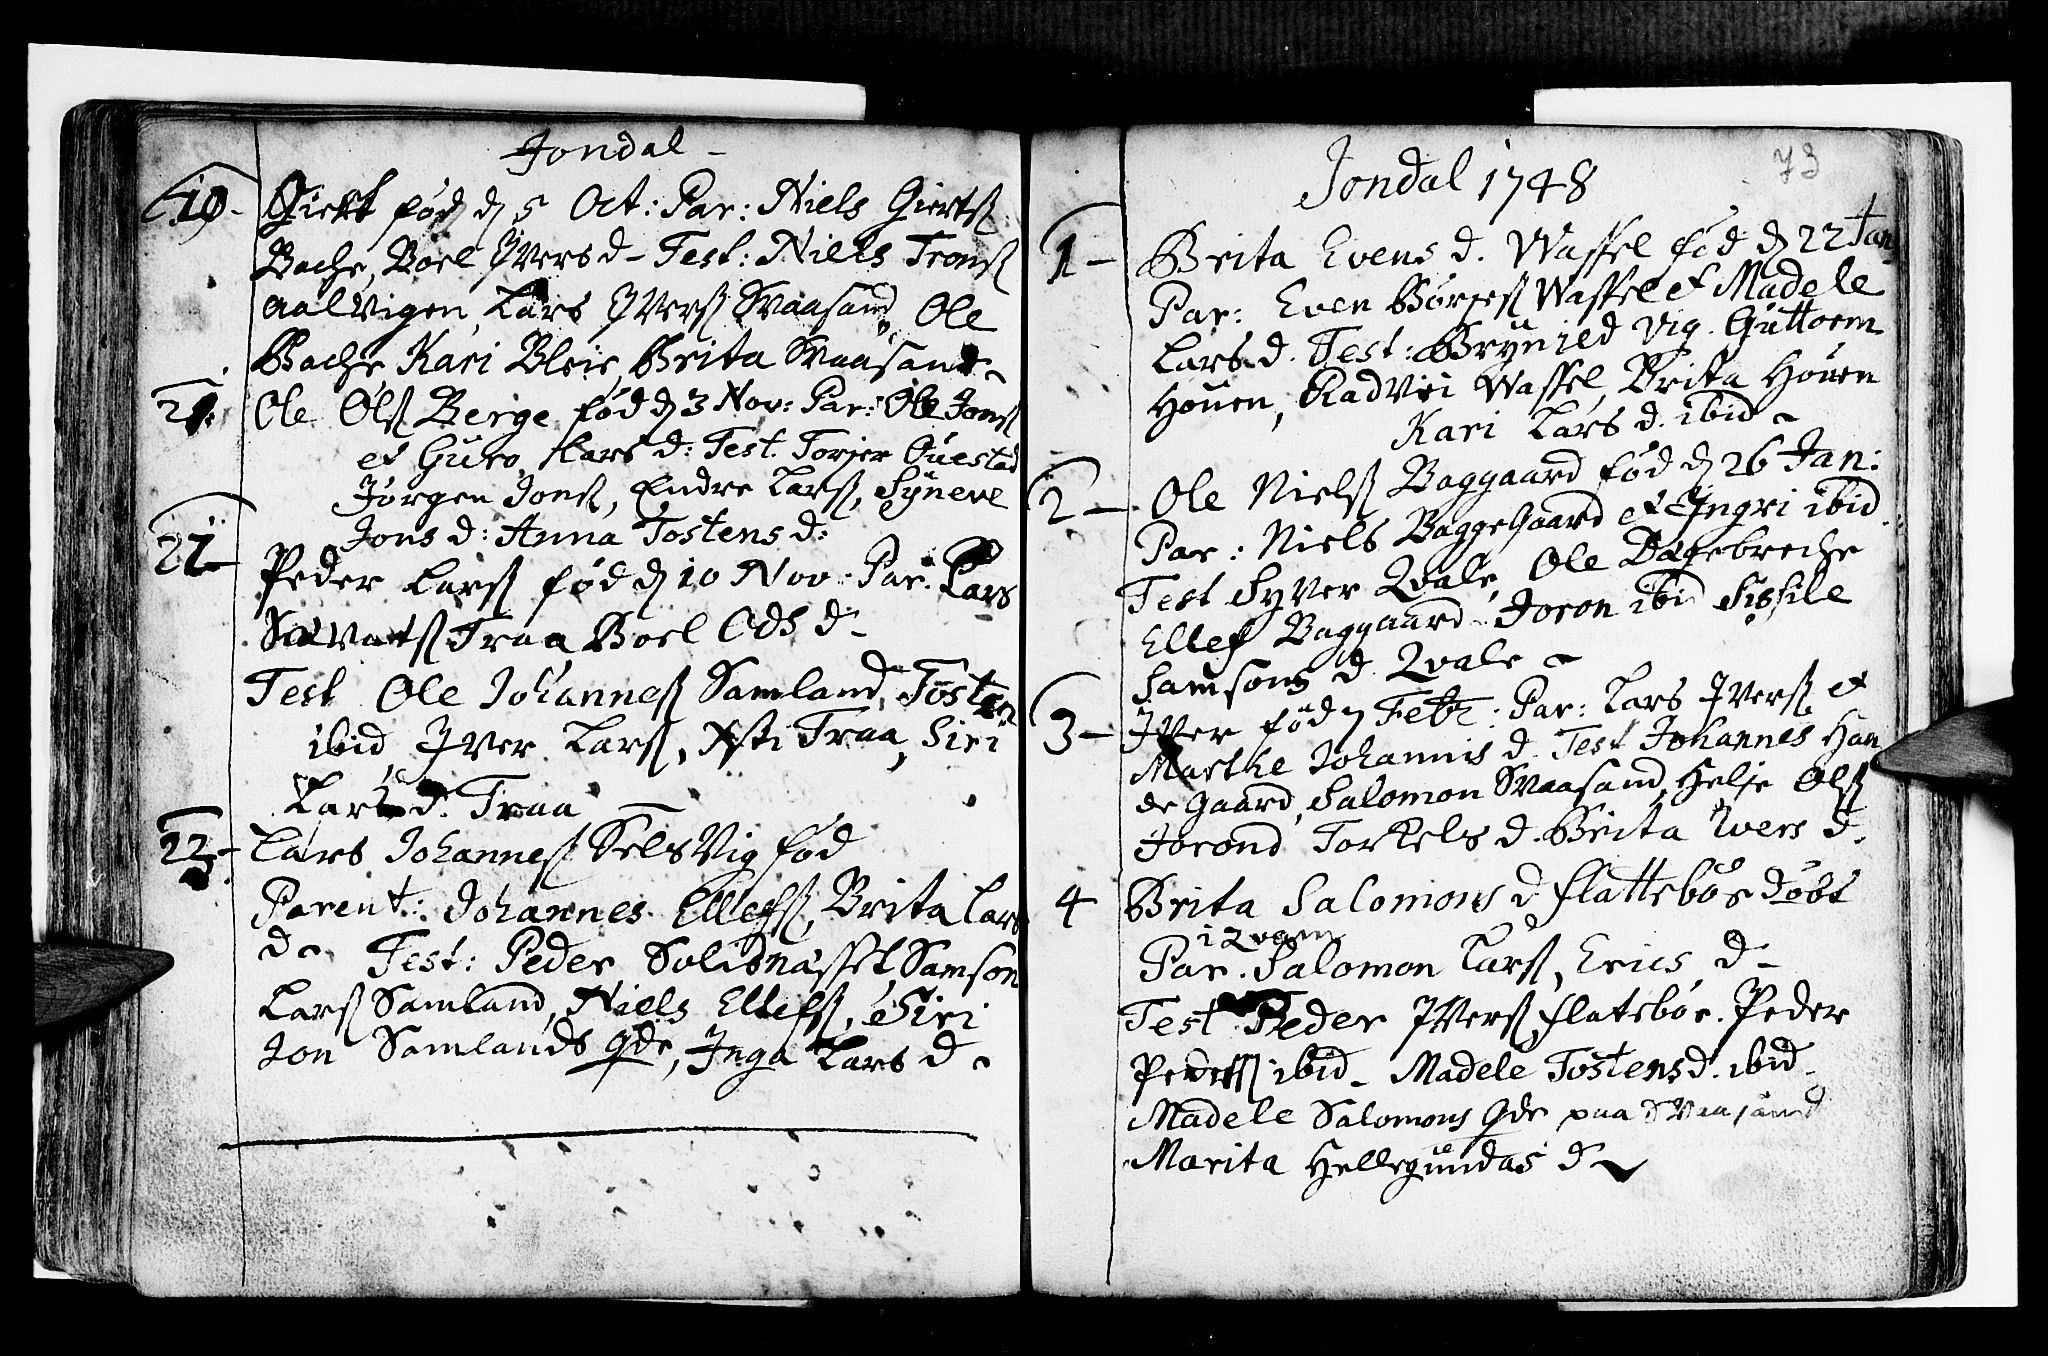 Jondal -
19. Giert fød d 5 Oct: Par: Niels Giertß
Bache, Boel Iversd - Test: Niels Tronß
Aalvigen, Lars Iverß Svaasand, Ole
Bache Kari Bleie, Brita Svaasand -
21. Ole Olß Berge fød d 3 Nov: Par: Ole Jonß
et Guro Lars d: Test. Torjer Questad
Jørgen Jonß, Endre Larß, Syneve
Jons d: Anna Tostens d:
21 Peder Larß fød d 10 Nov. Par. Lars
Traa Boel Ods d -
Test Ole Johanneß Samland, Tosten
ibid, Iver Larß, Traa, Siri
Lars d. Traa
22 - Lars Johanneß SelsVig fød
Parent: Johannes Ellefß, Brita Lars
d - Test: Peder Solisnæsset Samson
Larß Samland, Niels Ellefß, Siri
Jon Samlands Qde, Inga Lars d -
73
Jondal 1748
1 - Brita Evens d. Wassel fød d 22 Jan
Par: Even Børgeß Wassel et Madele
Lars d. Test: Brynild Vig. Guttorm
Houen, Radvei Wassel, Brita Houen
Kari Lars d. ibid -
2 - Ole Nielß Baggaard fød d 26 Jan:
Par: Niels BaggeGaard et Ingri ibid
Test Syver Qvale, Ole Døfebreche
Ellef Baggaard - Joron ibid Sissile
Samsons d. Qvale -
3 - Iver fød 7 Febr: Par: Lars Iverß et
Marthe Johannis d. Test Johannes Han
de Gaard, Salomon Svaasand, Helje Olß
Jorond Torkels d. Brita Ivers d.
4 Brita Salomons d Flattebøe døbt
i Qvam
Par. Salomon Larß, Erics d -
Test Peder Iverß Flatebøe. Peder
Pederß ibid - Madele Tostens d. ibid -
Madele Salomons Qde paa Svaasand
Marita Hellegundas d -